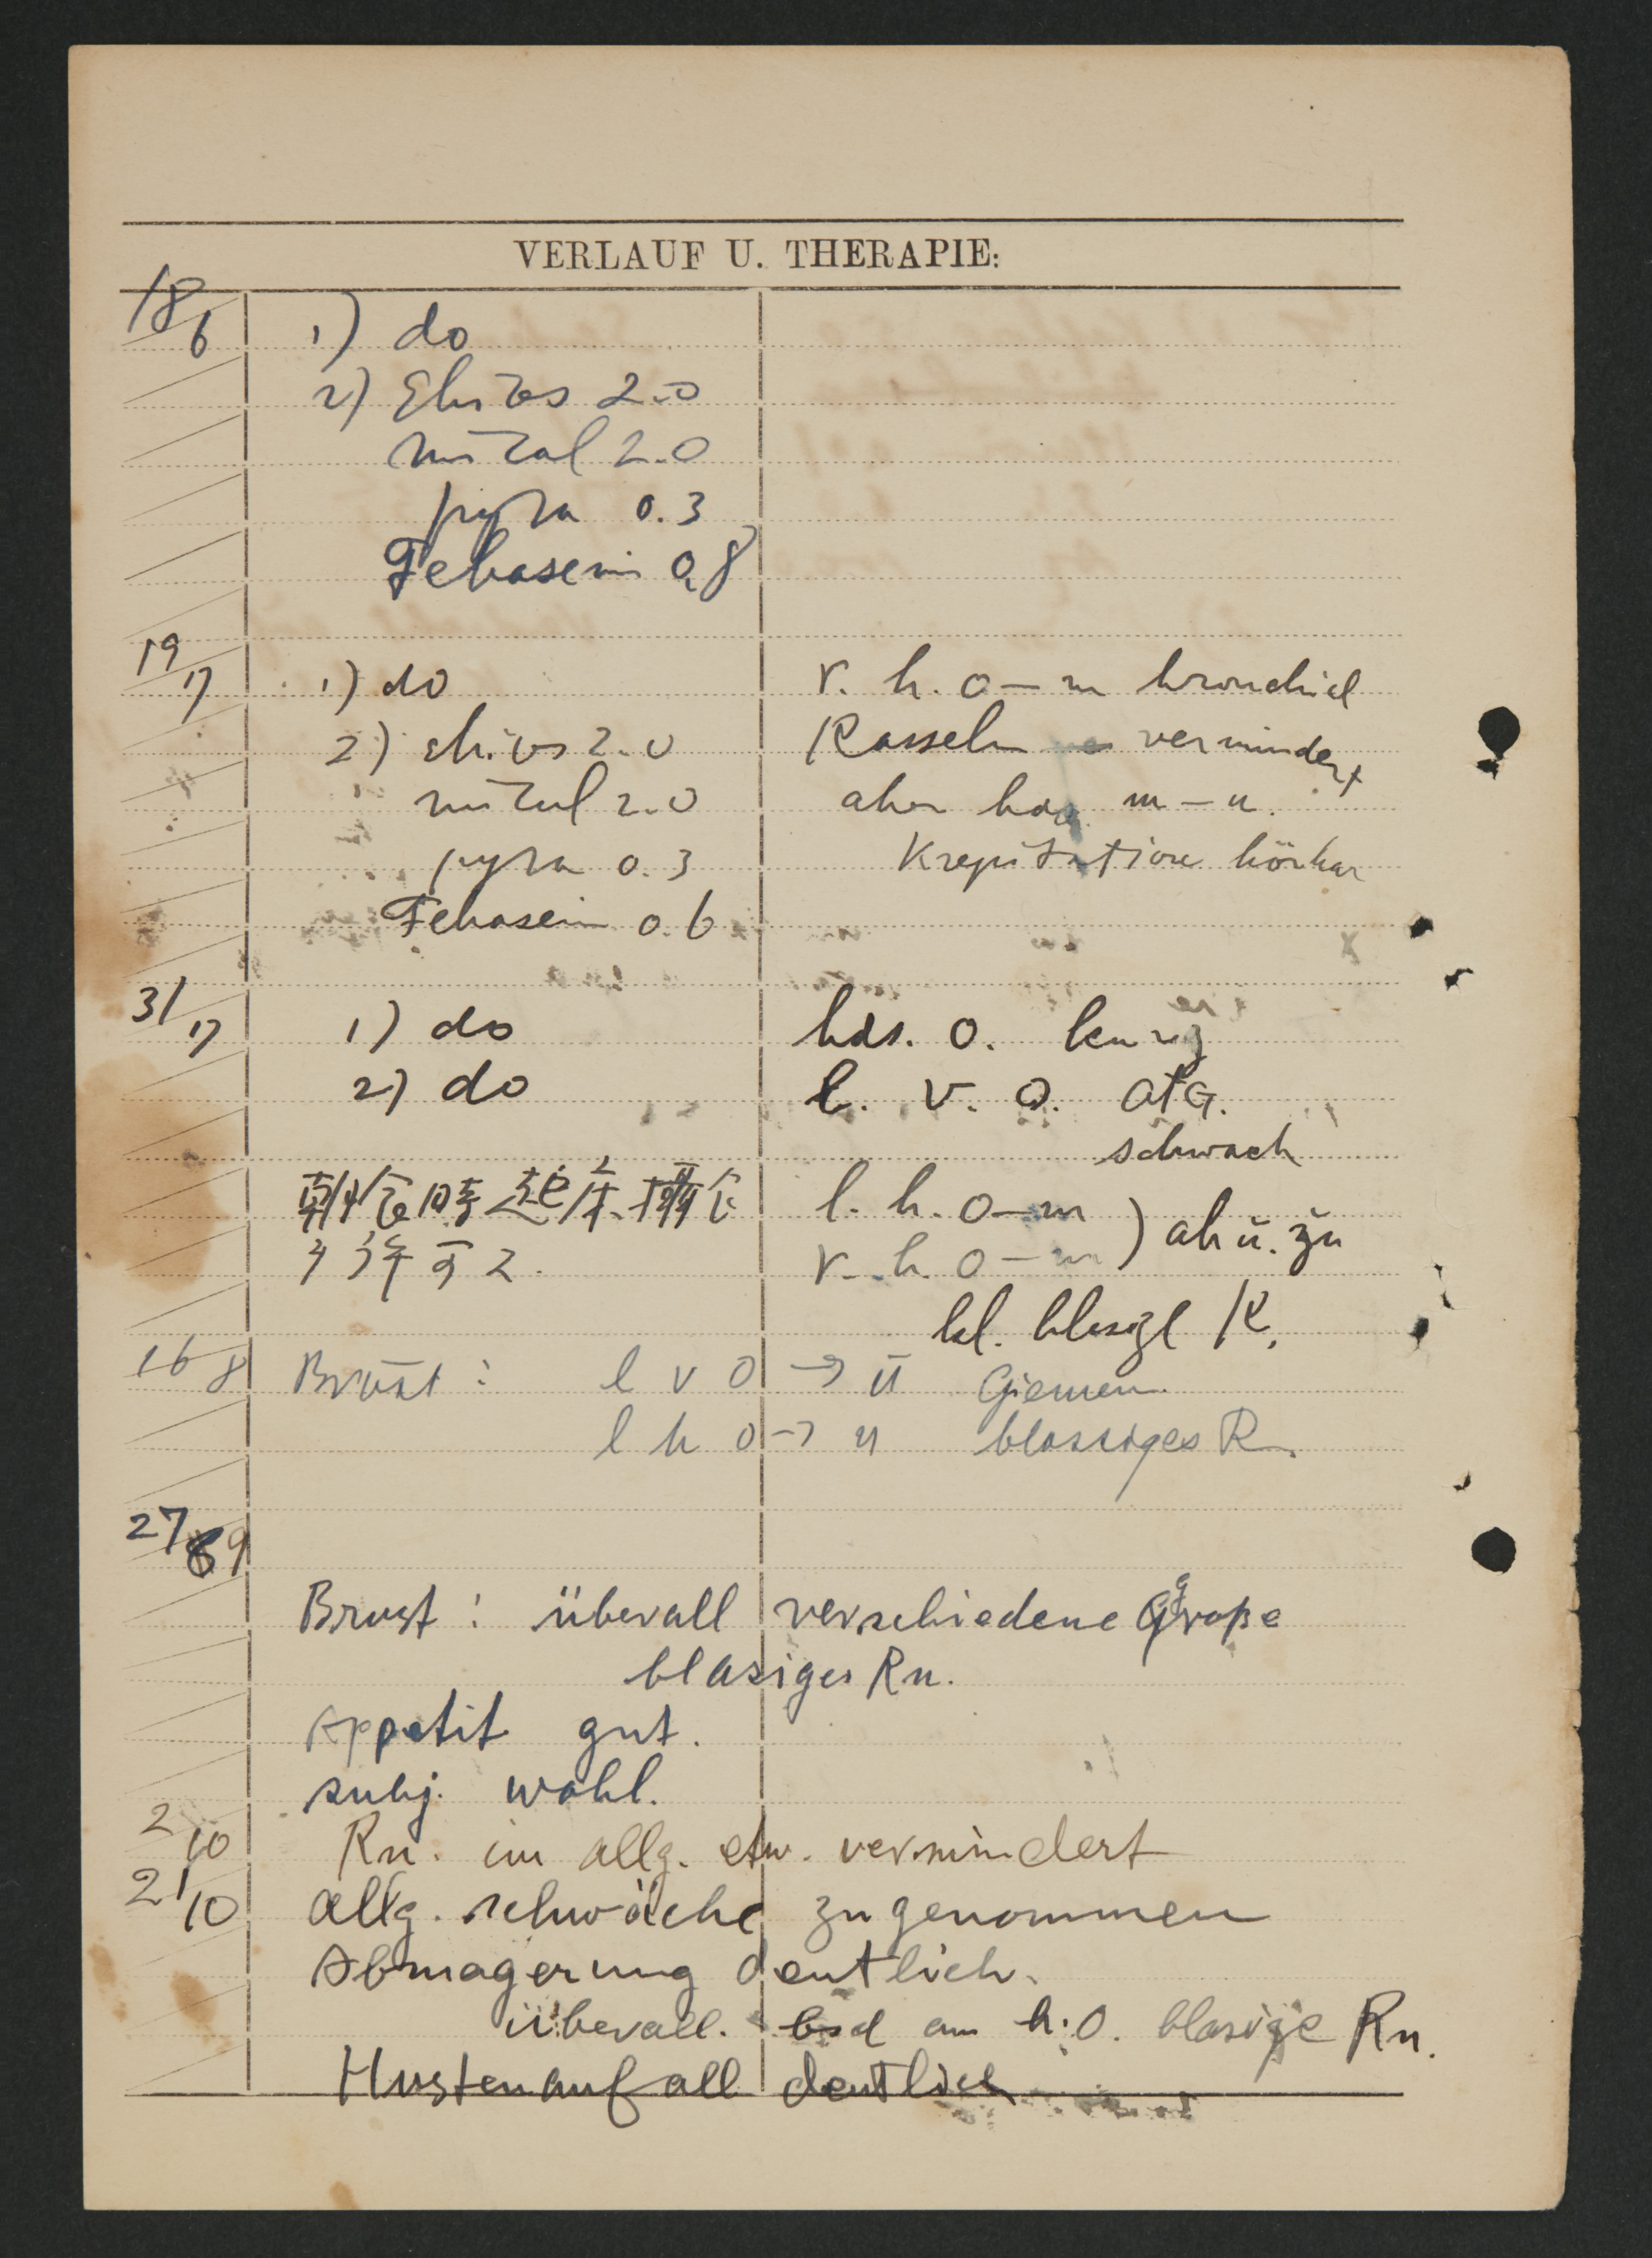 VERLAUF U. THERAPIE:
18/6 1) do
2) Ehios 2.0
mital 2.0
pyra 0.3
Febasein 0,8
19/7 1) do
2) ehios 2.0
mital 2.0
pyra 0.3
Febasein 0.6
r. h. o – m bronchial
Rasseln vermindert
aber bds m – u.
Krepitation hörbar
31/7 1) do
2) do
朝食時起床摂食
ヲ許可ス.
hds. o. kurz
l. v. o. atG.
schwach
l. h. o – m
r. h. o – m ) ab u. zu
kl. blasge R.
16 8 Brust : l v o → u Giemen
l h o → u blassiges R.
27 9
Brust : überall verschiedene große
blasiges Rn.
Appetit gut.
subj. wohl.
2/10 Rn. im allg. etw. vermindert
21/10 allg. schwäche zugenommen
Abmagerung deutlich.
überall. bsd am h. o. blasige Rn.
Hustenanfall deutlich